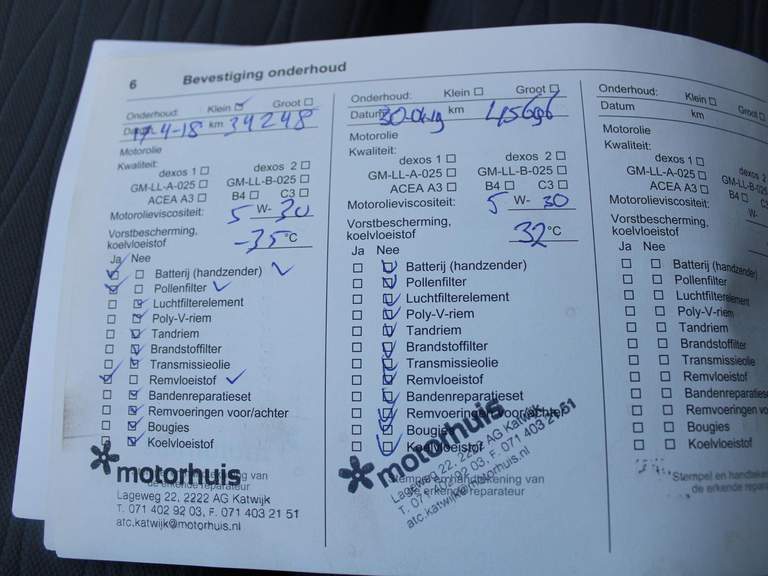 6 Bevestiging onderhoud
Onderhoud: Klein Groot
Datum 17-4-18 km 34248
Motorolie
Kwaliteit:
dexos 1 dexos 2
GM-LL-A-025 GM-LL-B-025
ACEA A3 B4 C3
Motorolieviscositeit: 5 W- 30
Vorstbescherming,
koelvloeistof -35 °C
Ja Nee
Batterij (handzender)
Pollenfilter
Luchtfilterelement
Poly-V-riem
Tandriem
Brandstoffilter
Transmissieolie
Remvloeistof
Bandenreparatieset
Remvoeringen voor/achter
Bougies
Koelvloeistof
motorhuis
Lageweg 22, 2222 AG Katwijk
T. 071 402 92 03, F. 071 403 21 51
atc.katwijk@motorhuis.nl
de erkende reparateur
Onderhoud: Klein Groot
Datum km
Motorolie
Kwaliteit:
dexos 1 dexos 2
GM-LL-A-025 GM-LL-B-025
ACEA A3 B4 C3
Motorolieviscositeit: 5 W- 30
Vorstbescherming,
koelvloeistof 32 °C
Ja Nee
Batterij (handzender)
Pollenfilter
Luchtfilterelement
Poly-V-riem
Tandriem
Brandstoffilter
Transmissieolie
Remvloeistof
Bandenreparatieset
Remvoeringen voor/achter
Bougies
Koelvloeistof
motorhuis
Lageweg 22, 2222 AG Katwijk
T. 071 402 92 03, F. 071 403 21 51
atc.katwijk@motorhuis.nl
Stempel en handtekening van
de erkende reparateur
Onderhoud: Klein Groot
Datum km
Motorolie
Kwaliteit:
dexos 1
GM-LL-A-025 GM-LL-B-025
ACEA A3 B4
Motorolieviscositeit: W-
Vorstbescherming,
koelvloeistof
Ja Nee
Batterij (handzender)
Pollenfilter
Luchtfilterelement
Poly-V-riem
Tandriem
Brandstoffilter
Transmissieolie
Remvloeistof
Bandenreparatieset
Remvoeringen vo
Bougies
Koelvloeistof
Stempel en handteken
de erkende repara